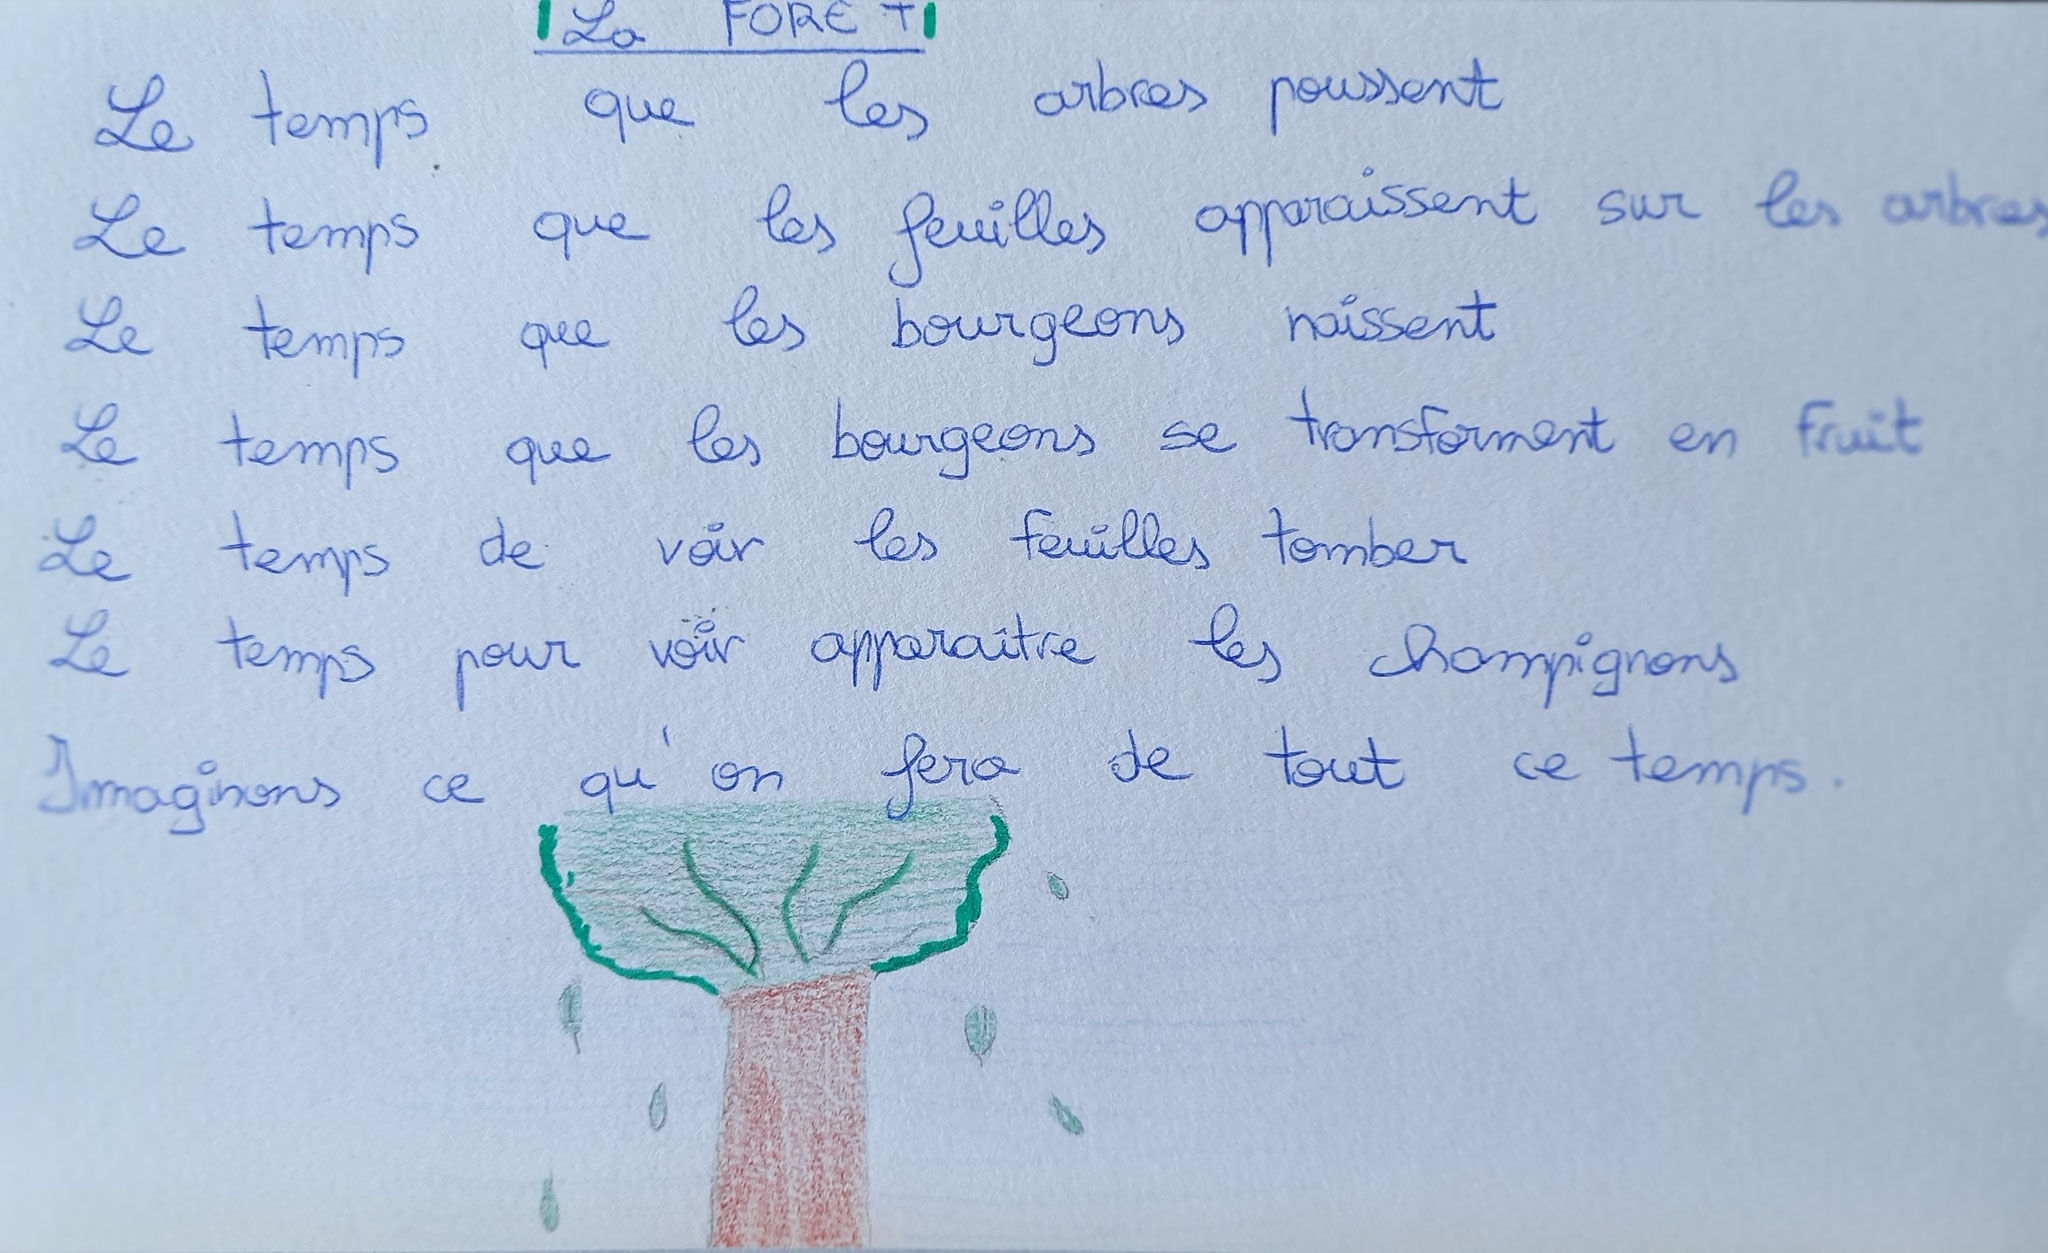 La FORET
Le temps que les arbres poussent
Le temps que les feuilles apparaissent sur les arbres
Le temps que les bourgeons naissent
Le temps que les bourgeons se transforment en fruit
Le temps de voir les feuilles tomber
Le temps pour voir apparaître les champignons
Imaginons ce qu'on fera de tout ce temps.